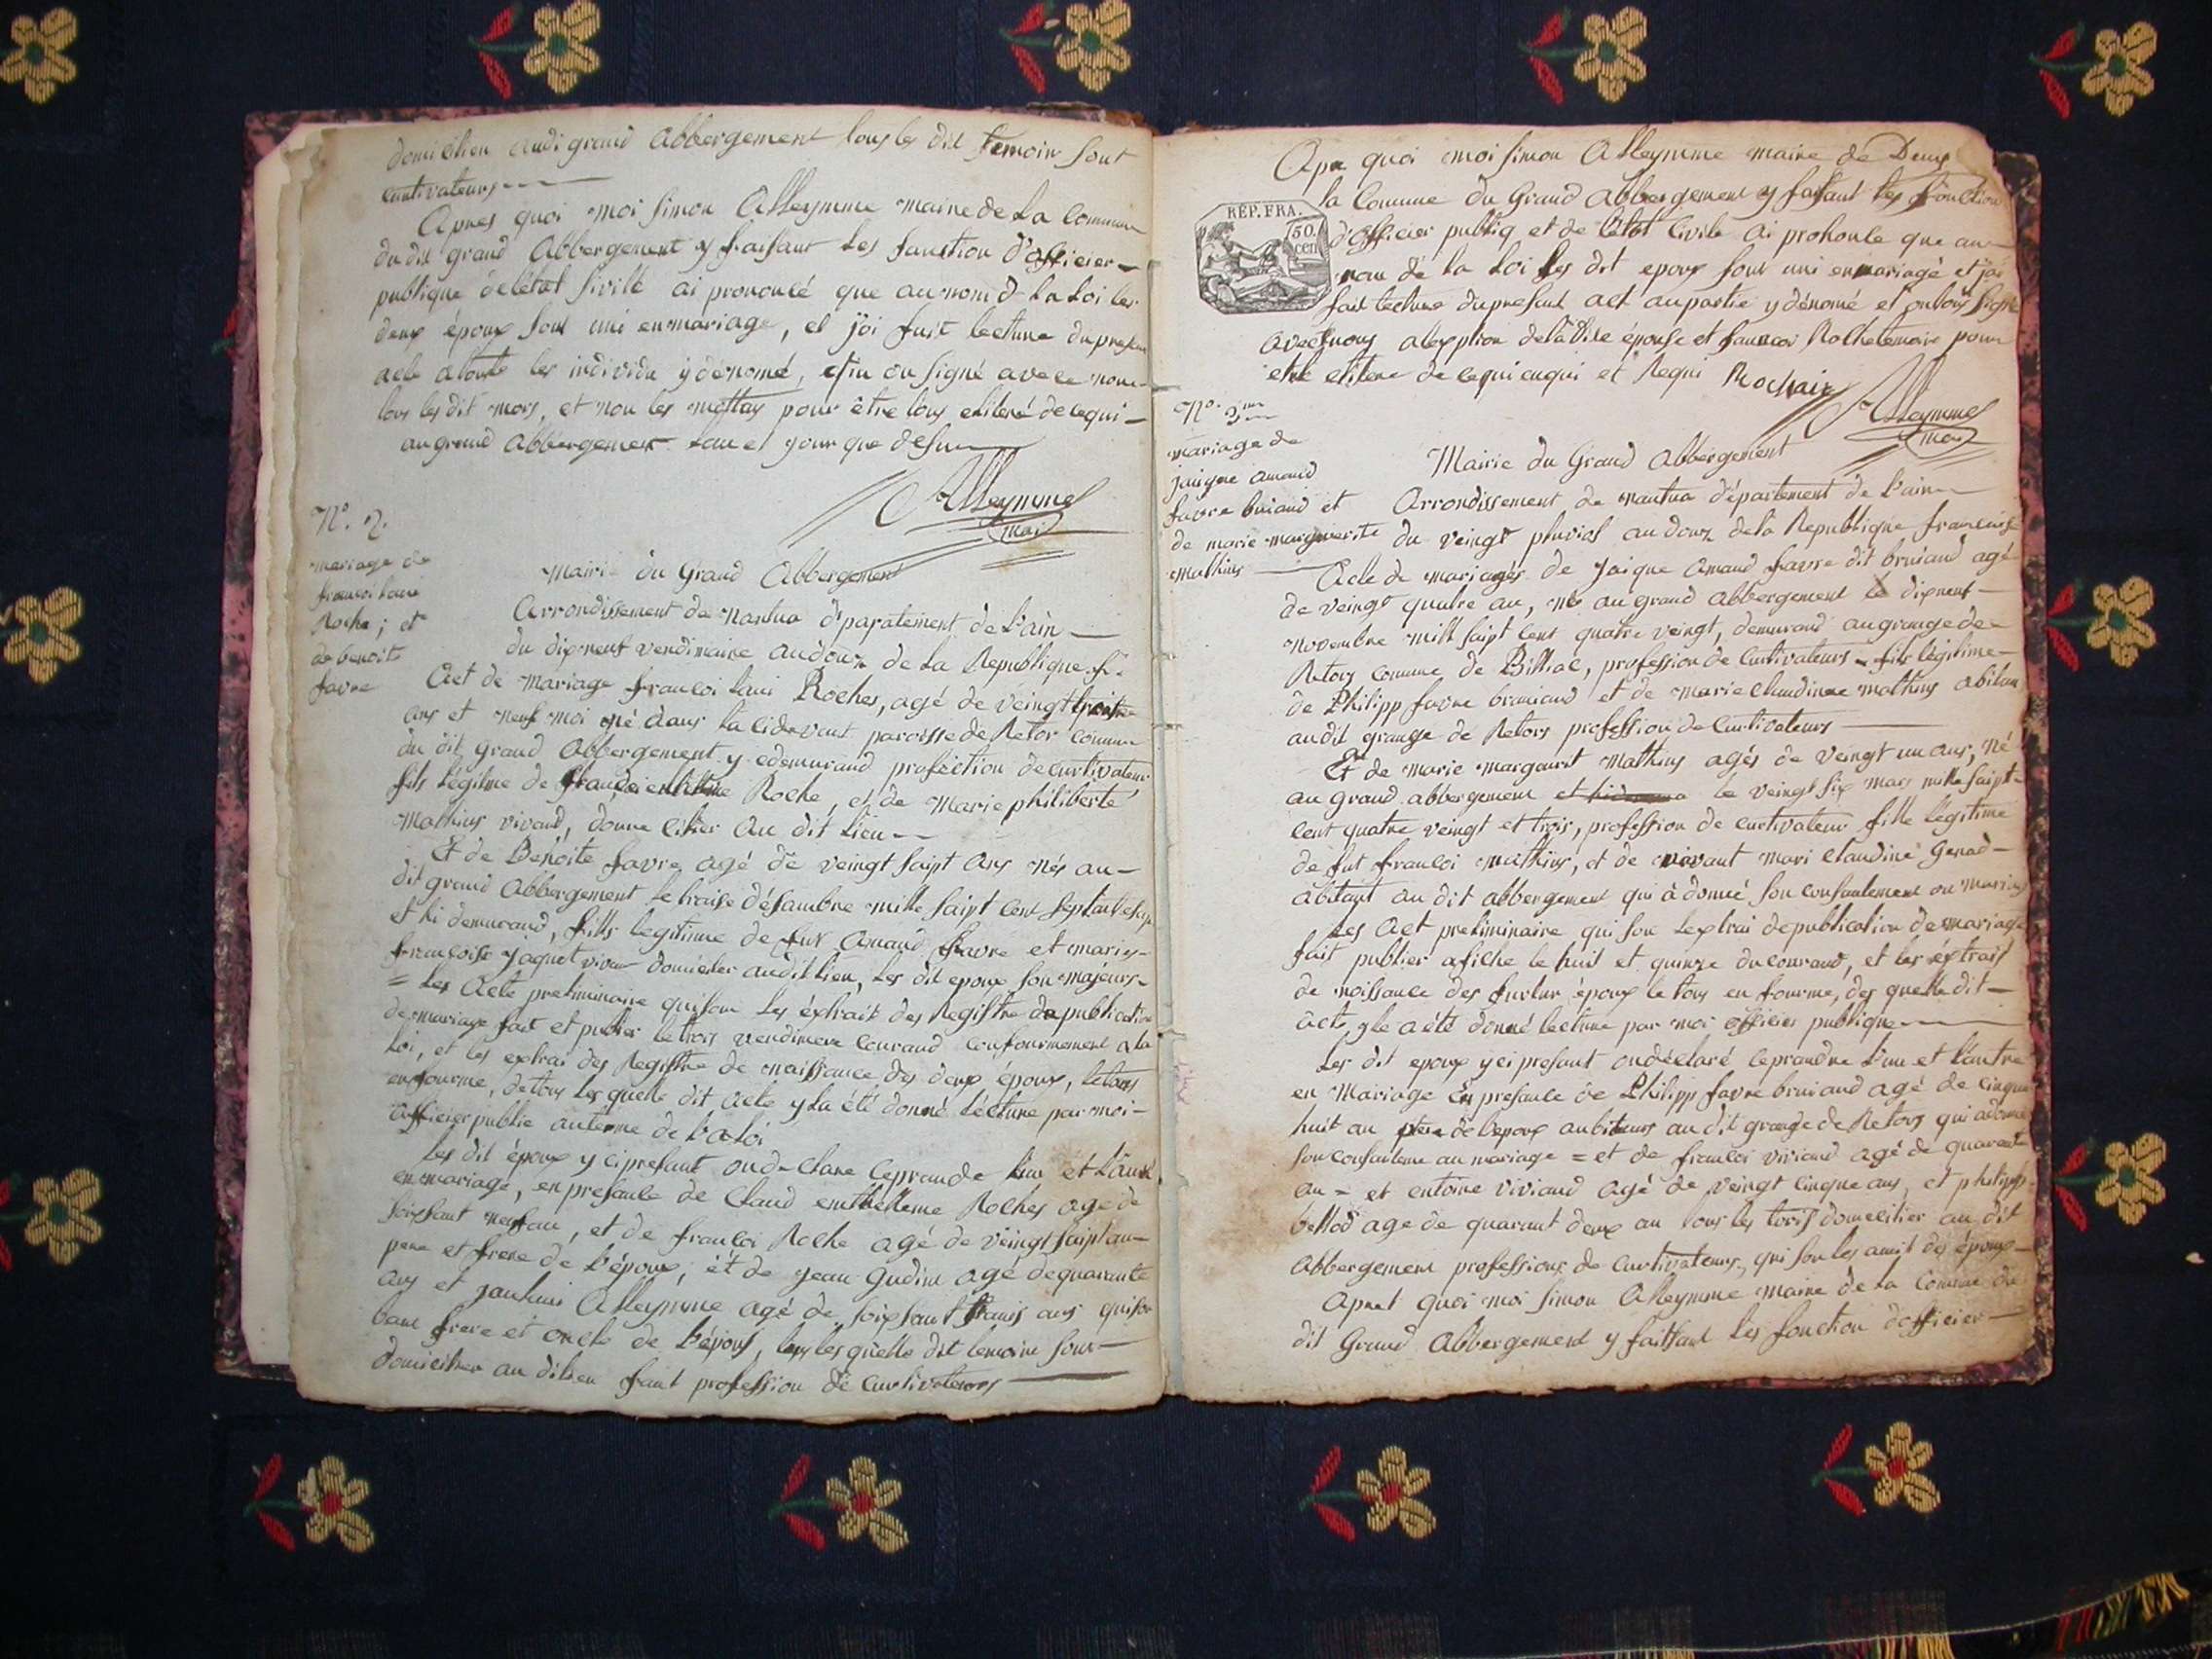 domicilien audi grand abbergement tous les dit temoin sont
curtivateurs
Apres quoi moi simon Alleymme maire de la commune
du dit grand abbergement y faisant les fonction d'officier
publique de létat sivile ai prononcé que au nom d la loi les
deux époux sont uni en mariage, et j'ai fait lecture du present
acte a toute les individu y dénomé, on signé avec nous
lors les dit mors, et non les pour être tous elitené de ce qui
au grand abbergement lan et jour que desu
Alleymme
mair
N°. 2.
mariage de
francoi loui
Roche; et
de benoite
favre
Mairie du Grand Abbergement
Arrondissement de Nantua d'paratement de l'ain
du dixneuf vendimaire an douz de la Republique f.
Act de mariage francoi loui Roches, agé de veingt trois
ans et neuf moi né dans la cidevant paroisse de Retor commune
du dit grand abbergement y edemurand profection de curtivateur
fils légitme de Roche, et de Marie philiberte
Mathius vivand, domicilier au dit lieu
Et de Benoite favre agé de veingt saipt ans nés au
dit grand abbergement le traise désambre mille saipt cent septante
et hi demurand, fills legitime de fut Amand favre et marie
françoise jaquet vivan domicilier audit lieu, les dit epoux son majeurs
= les Acte preliminaire quison les éxtrait des Registre de publication
de mariage fait et publier le trois vendimere courand confourmement a la
loi, et les extrai des Registre de naissance des deux époux, letous
en fourme, de tous les quelle dit acte y la été donné lécture par moi
officier public au terme de la loi
les dit époux y ci presant on declare ce prande l'un et l'autre
en mariage, en presance de Claud Roches age de
soixsant neuf an, et de francoi Roche agé de veingt saipt an
pere et frere de l'époux, et de jean Gudin agé de quarante
ans et Alleymme agé de soixsant trois ans quison
beau frere et oncle de l'épous, tous les quelle dit temoin son
domicilier au dit lieu faint profession de curtivateurs
Apre quoi moi simon Alleymme maire de Deux
la Comune du Grand abbergement y faisant les fonction
REP. FRA.
50.
cen
d'officier publiq et de letat civile ai prononce que au
nom de la loi les dit epoux sont uni en mariage et jai
fait lecture du presant act au partie y dénomé et on tous signé
avec nous a lexption de la dite épouse et francoi Roche temoin pour
etre elitene de ce qui enqui et Requi Rochaix
Alleymme
mair
N°. 3me
mariage de
jaique amand
favre buiand et
de marie marguerite
mathius
Mairie du Grand Abbergement
Arrondissement de nantua département de l'ain
du veingt pluvios an douz de la Republique francaise
Acte de mariages de jaique amand favre dit bruiand agé
de veingt quatre an, né au grand abbergement le dixneuf
novembre mill saipt cens quatre veingt, demurand au grange de
Retors comune de Billiat, profession de curtivateurs fils légitime
de Philipp favre bruiand et de marie claudinne mathius abitan
au dit grange de Retors profession de curtivateurs
Et de marie margaurit Mathius agés de veingt un ans, né
au grand abbergement le veingt six mars mille saipt
cent quatre veingt et trois, profession de curtivateur fille legitime
de fut francoi mathius, et de vivant mari claudine Genod
abitant au dit abbergement qui à donné son consantement au mariag
les act preliminaire qui son lextrai de publication de mariage
fait publier afiche le huit et quinze du courand, et les éxtrait
de noissance des furtur époux le tous en fourme, des quelle dit
acts, yle a été donné lecture par moi officier publique
les dit epoux y ci presant on déclaré ce prandre l'un et l'autre
en mariage en presance de Philipp favre bruiand agé de cinquan
huit an pere de l'epoux aubitans au dit grange de Retors qui a donné
son consanteme au mariage = et de francoi viviand agé de quarante
an = et entoine viviand agé de veingt cinque ans, et philipp
bellod age de quarant deux an tous les trois domecilier au dit
abbergement professions de curtivateurs, qui son les amit des époux
Apret quoi moi simon Alleymme maire de la comune du
dit Grand abbergement y faitsant les fonction d'officier